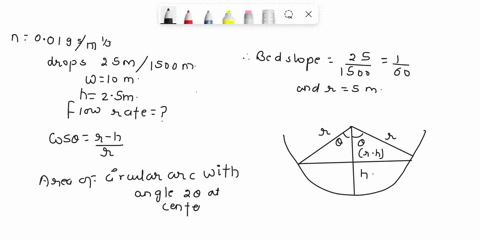 n = 0.019 s/m^1/3
drops 25m/1500m
w=10 m.
h=2.5m.
Flow rate=?
cosθ = r-h/r
Area of circular arc with
angle 2θ at
cente
∴ Bed slope = 25/1500 = 1/60
and r = 5 m.
r
r
θ
θ
(r-h)
h.